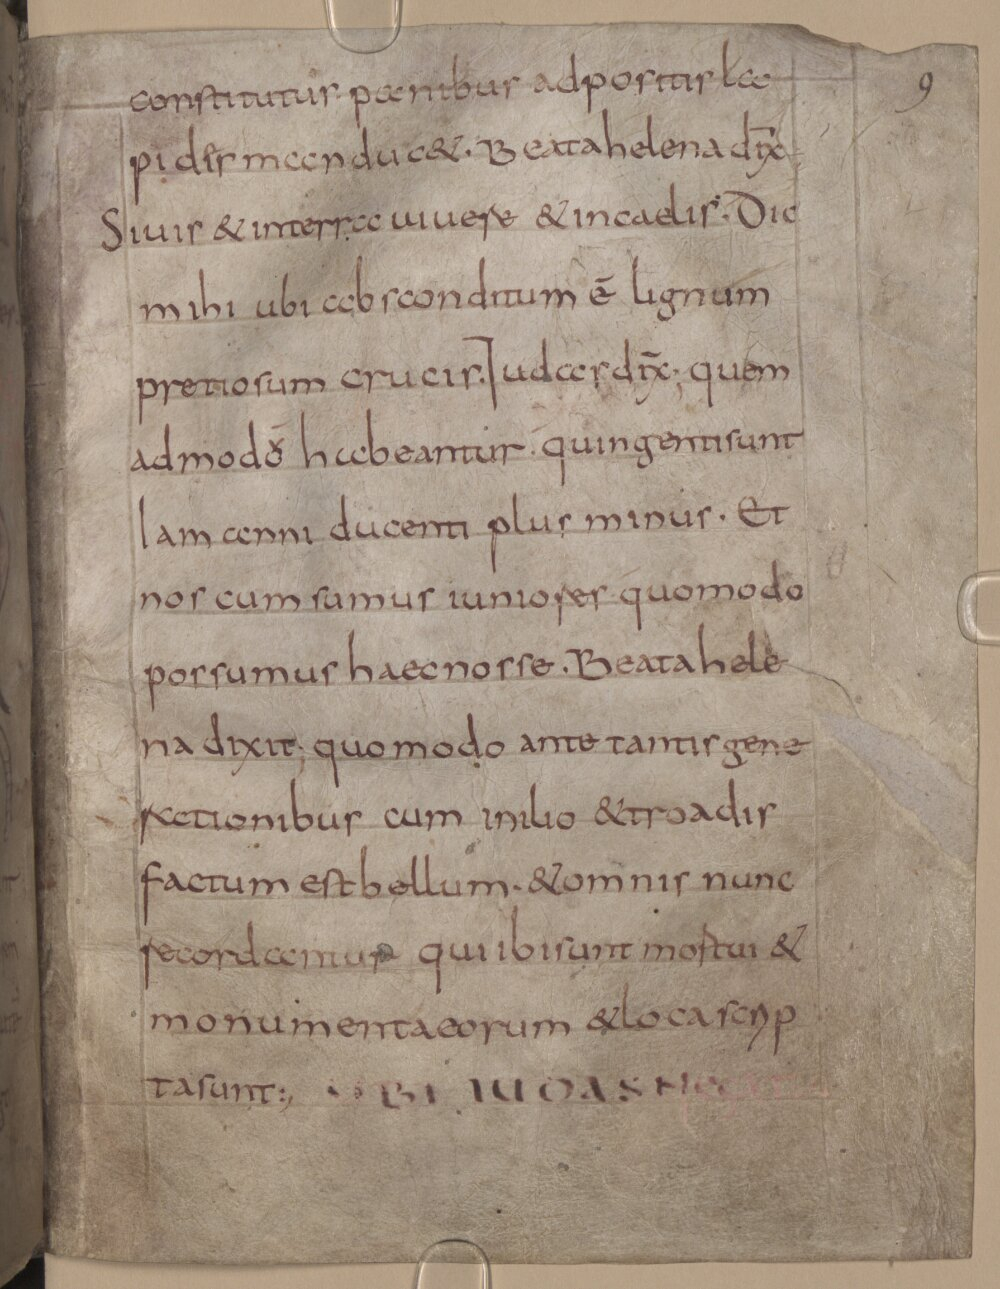 9
constitutus· panibus adpositis la
pidis manduc&· Beata helena dix̄
Siuis & interra uiuere & incaelis· Dic
mihi ubi absconditum ē lignum
pretiosum crucis· Iudas dix̄; quem
admodō habeantur· quingentisunt
Iam anni ducenti plus minus· Et
nos cum sumus iuniores· quomodo
possumus haec nosse· Beata hele
na dixit; quomodo ante tantis gene
rationibus cum inilio & troadis
factum est bellum· & omnis nunc
recordantur qui ibi sunt mortui &
monumenta eorum & loca scrip
ta sunt:, UBI IUDAS